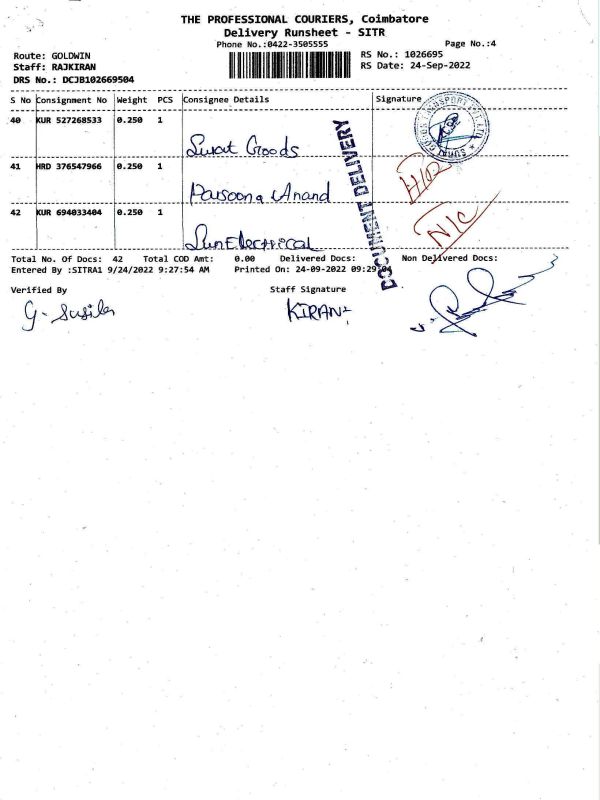 THE PROFESSIONAL COURIERS, Coimbatore
Delivery Runsheet - SITR
Phone No.:0422-3505555
Page No.:4
Route: GOLDWIN
RS No.: 1026695
Staff: RAJKIRAN
RS Date: 24-Sep-2022
DRS No.: DCJB102669504
S No Consignment No Weight PCS Consignee Details Signature
40 KUR 527268533 0.250 1
Surat Goods
41 HRD 376547966 0.250 1
Parsoona Anand
H/02
42 KUR 694033404 0.250 1
Sun Electrical
N/C
DOCUMENT DELIVERY
Total No. Of Docs: 42 Total COD Amt: 0.00 Delivered Docs: Non Delivered Docs:
Entered By :SITRA1 9/24/2022 9:27:54 AM Printed On: 24-09-2022 09:29:04
Verified By Staff Signature
G. Susila KIRAN